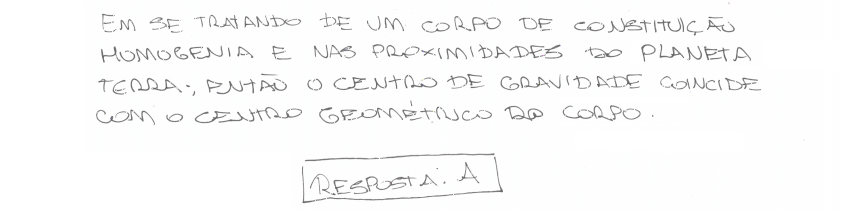 EM SE TRATANDO DE UM CORPO DE CONSTITUIÇÃO
HOMOGENIA E NAS PROXIMIDADES DO PLANETA
TERRA., ENTÃO O CENTRO DE GRAVIDADE COINCIDE
COM O CENTRO GEOMÉTRICO DO CORPO.
RESPOSTA: A